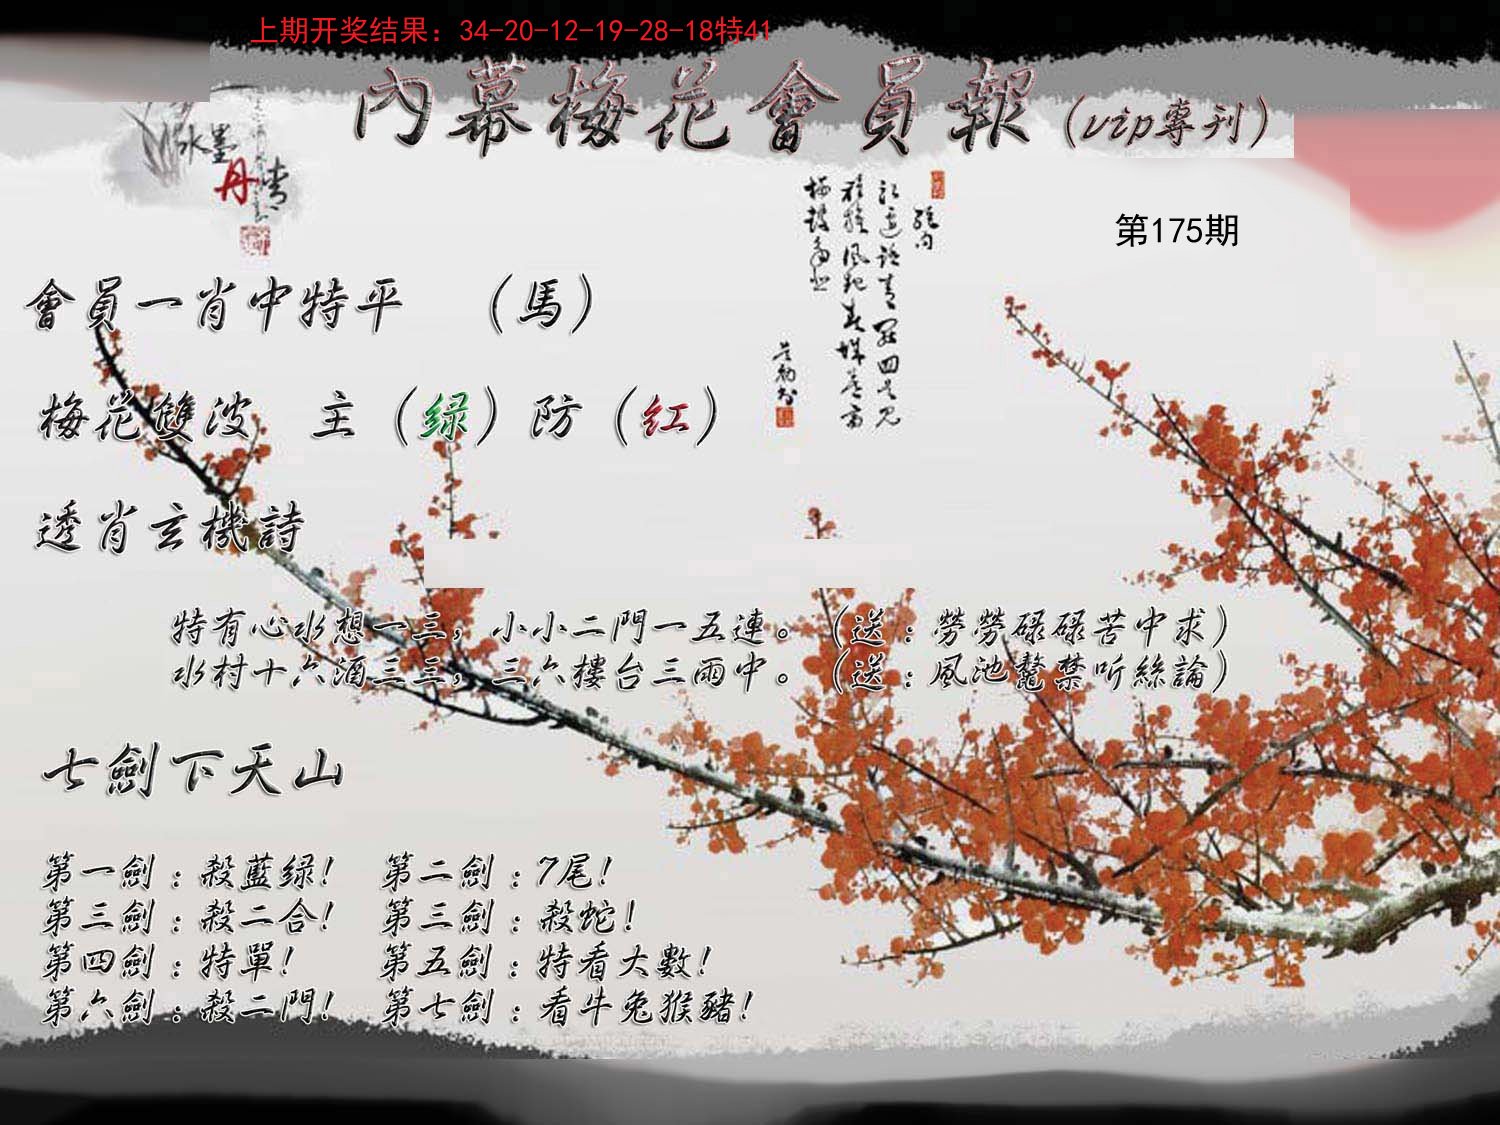 上期开奖结果：34-20-12-19-28-18特41
內幕梅花會員報（vip專刊）
水墨
丹青
第175期
會員一肖中特平 （馬）
梅花雙波 主（绿）防（红）
透肖玄機詩
特有心水想一三，小小二門一五連。（送：勞勞碌碌苦中求）
水村十六酒三三，三六樓台三雨中。（送：風池鼇禁听絲論）
七劍下天山
第一劍：殺藍绿！ 第二劍：7尾！
第三劍：殺二合！ 第三劍：殺蛇！
第四劍：特單！ 第五劍：特看大數！
第六劍：殺二門！ 第七劍：看牛兔猴豬！